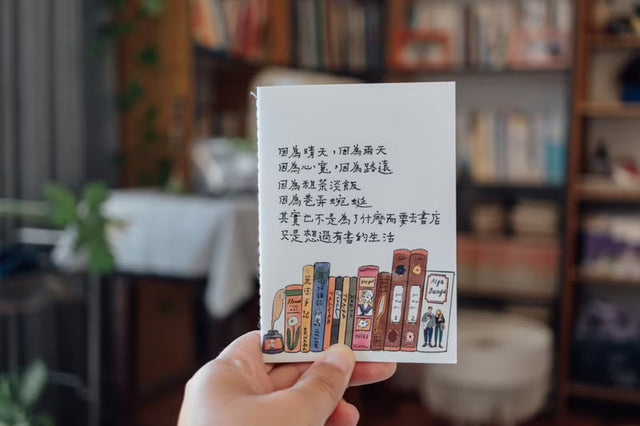 因為晴天,因為雨天
因為心寬,因為路遠
因為粗茶淡飯
因為巷弄蜿蜒
其實也不是為了什麼而要去書店
只是想過有書的生活